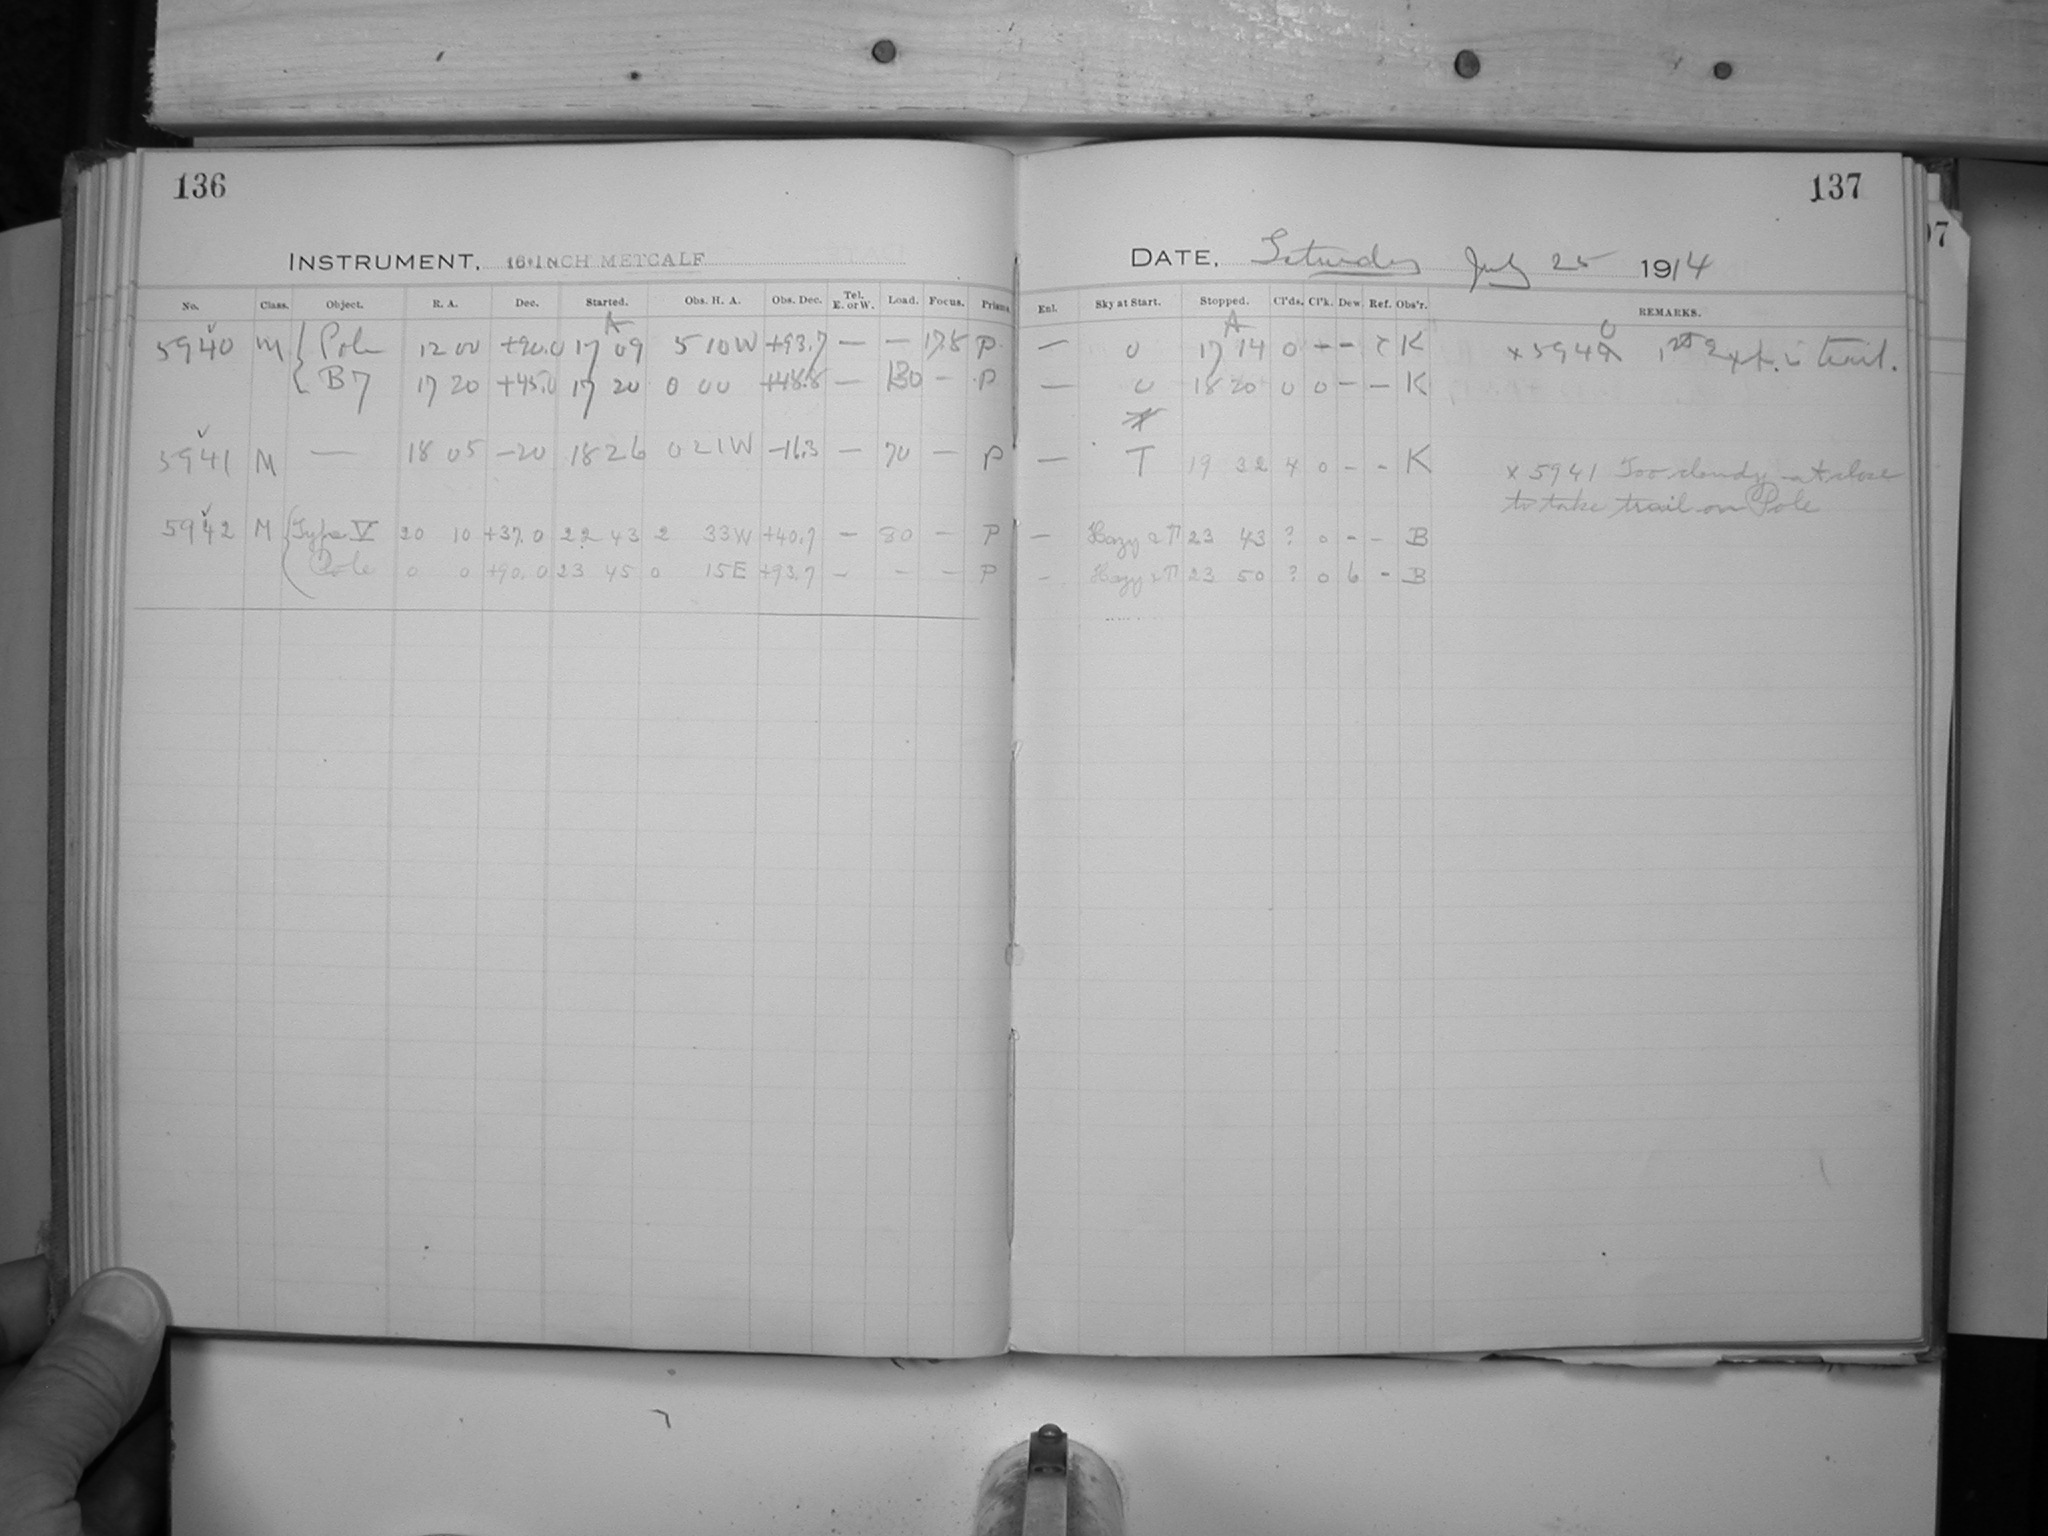 136
137
INSTRUMENT, 16-INCH METCALF
DATE, Saturday July 25 1914
No. Class. Object. R. A. Dec. Started. Obs. H. A. Obs. Dec. Tel. E. or W. Load. Focus. Prisms. Enl. Sky at Start. Stopped. Cl'ds. Cl'k. Dew. Ref. Obs'r. REMARKS.
A A
5940 M Pole 12 00 +90.0 17 09 5 10 W +93.7 — — 17.8 P — 0 17 14 0 + - K x 5940 1st Expt. is trail.
B7 17 20 +45.0 17 20 0 00 +48.8 — 130 — P — 0 18 20 0 0 — — K
5941 M — 18 05 -20 18 26 0 21 W -16.3 — 70 — P — T 19 32 4 0 - - K x 5941 Too cloudy at close
to take trail on Pole
5942 M Type V 20 10 +37.0 22 43 2 33 W +40.7 — 80 — P — Hazy & π 23 43 ? 0 - - B
Pole 0 0 +90.0 23 45 0 15 E +93.7 — — — P — Hazy & π 23 50 ? 0 6 - B